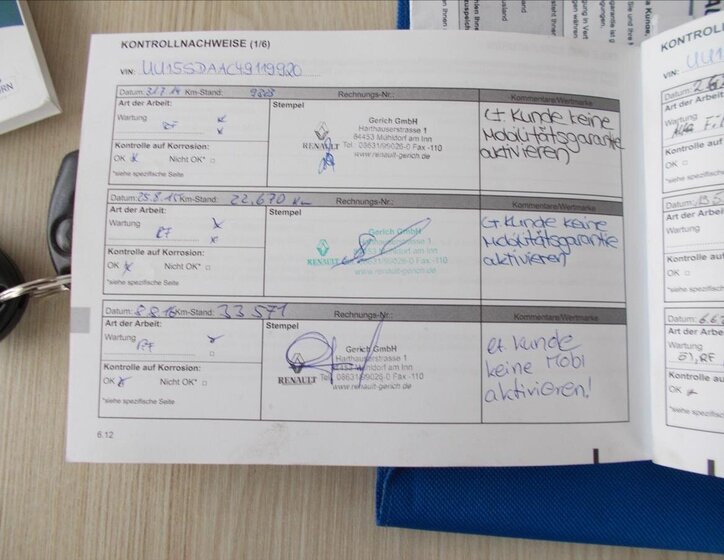 KONTROLLNACHWEISE (1/6)
VIN: UU15SDAAC49119920
Datum: 31.7.14 Km-Stand: Rechnungs-Nr.: Kommentare/Wertmarke
Art der Arbeit:
Wartung
RF
Kontrolle auf Korrosion:
OK x Nicht OK* □
*siehe spezifische Seite
Stempel
RENAULT
Gerich GmbH
Harthauserstrasse 1
84453 Mühldorf am Inn
Tel. 08631/99026-0 Fax -110
www.renault-gerich.de
Lt. Kunde keine
Mobilitätsgarantie
aktivieren
Datum: 25.8.15 Km-Stand: 22,670 km Rechnungs-Nr.: Kommentare/Wertmarke
Art der Arbeit:
Wartung x
RF x
Kontrolle auf Korrosion:
OK x Nicht OK* □
*siehe spezifische Seite
Stempel
RENAULT
Gerich GmbH
Harthauserstrasse 1
www.renault-gerich.de
Kunde keine
Mobilitätsgarantie
aktivieren
Datum: 8.8.16 Km-Stand: 33571 Rechnungs-Nr.: Kommentare/Wertmarke
Art der Arbeit:
Wartung
RF
Kontrolle auf Korrosion:
OK Nicht OK* □
*siehe spezifische Seite
Stempel
RENAULT
Gerich GmbH
Harthauserstrasse 1
84453 Mühldorf am Inn
Tel. 08631/99026-0 Fax -110
www.renault-gerich.de
Lt. Kunde
keine Mobi
aktivieren!
6.12
KONTROLL
VIN:
Datum:
Art der Arbeit:
Wartung
Kontrolle auf
OK
*siehe spezifische
Datum:
Art der Arbei
Wartung
Kontrolle auf
OK
*siehe spezifisch
Datum:
Art der Arbeit
Wartung
Öl, RF
Kontrolle auf
OK
*siehe spezifisch